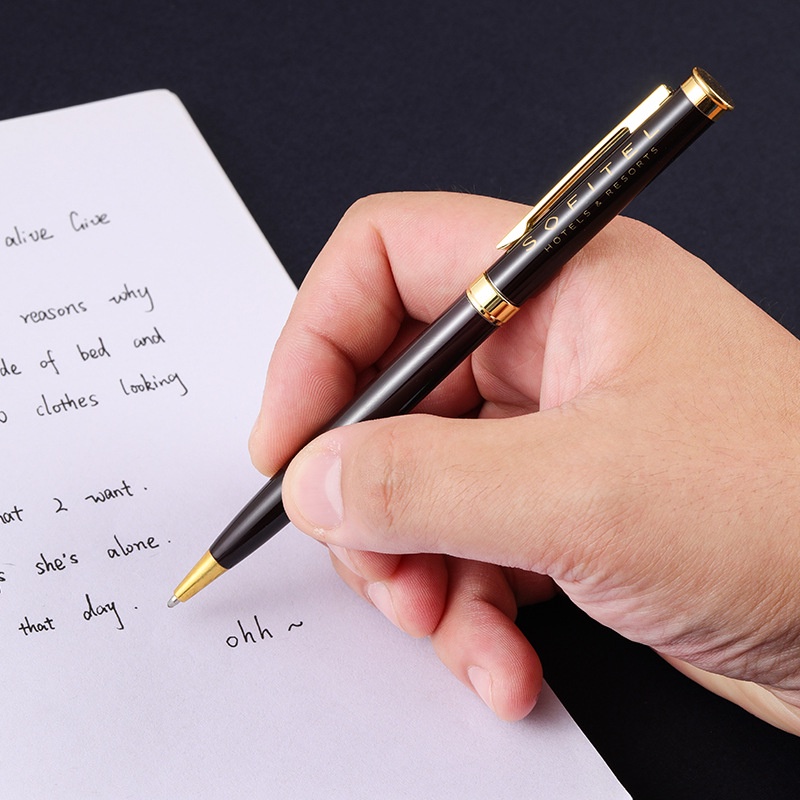 alive Give
reasons why
de of bed and
o clothes looking
hat 2 want.
s she's alone.
that day.
ohh ~
SOFITEL
HOTELS & RESORTS